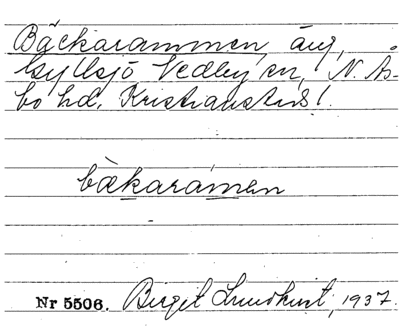 Bäckarammen, äng,
Kyllsjö Vedby sn, N. Ås-
bo hd, Kristianstads l.
bäkaramen
Nr 5506. Birget Lundkvist, 1937.